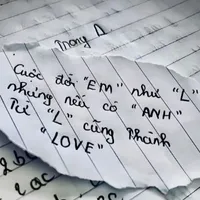 Trong A
Cuộc đời "EM" như "L"
nhưng nếu có "ANH"
Từ "L" cũng thành
"LOVE"